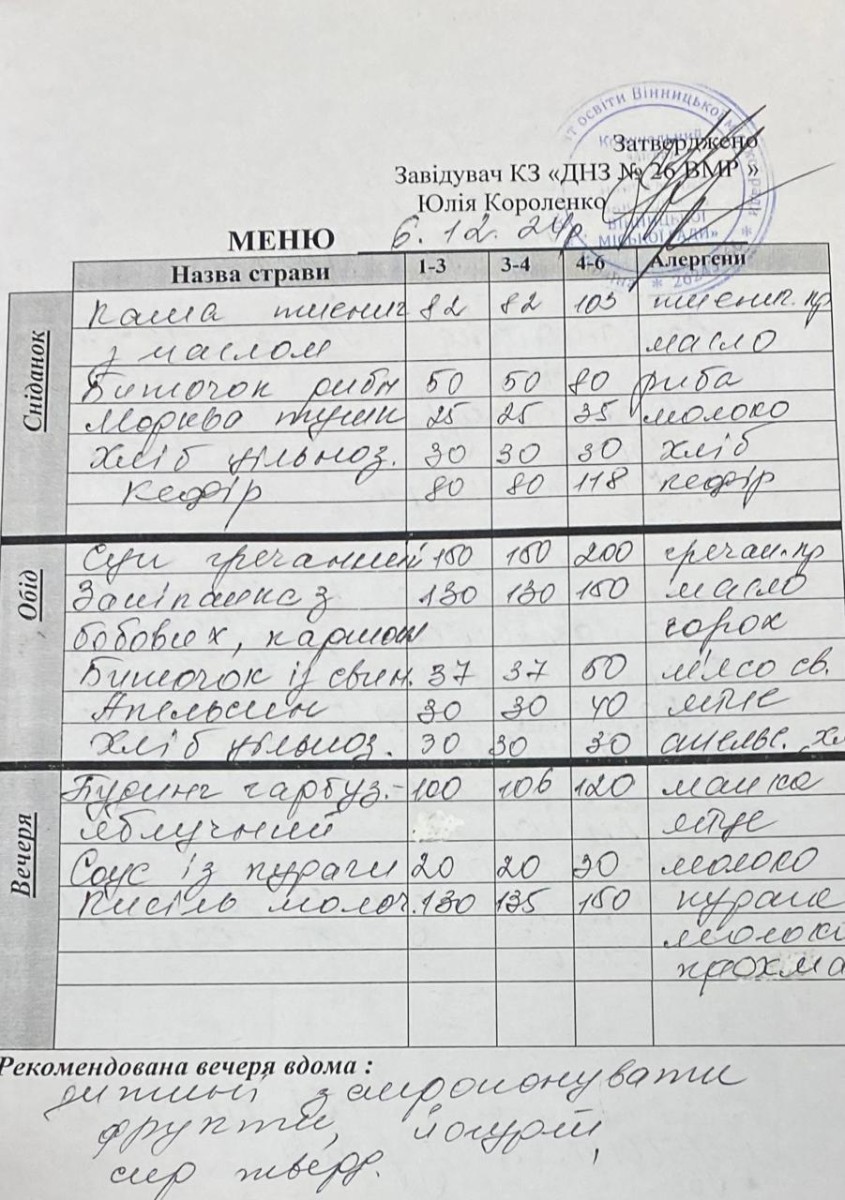 Затверджено
Завідувач КЗ «ДНЗ № 26 ВМР »
Юлія Короленко
МЕНЮ 6. 12. 24р
Назва страви 1-3 3-4 4-6 Алергени
Сніданок
каша пшенич 82 82 103 пшенич. кр
з маслом масло
Биточок рибн 50 50 80 риба
Морква тушк 25 25 35 молоко
Хліб цільноз. 30 30 30 хліб
Кефір 80 80 118 кефір
Обід
Суп гречаний 150 150 200 гречан. кр
Запіканка з 130 130 150 масло
бобових, картоп горох
Биточок із свин. 37 37 50 м'ясо св.
Апельсин 30 30 40 яйце
Хліб цільноз. 30 30 30 апельс. хл
Вечеря
Пудинг гарбуз.- 100 106 120 манка
яблучний яйце
Соус із кураги 20 20 30 молоко
Кисіль молоч. 130 135 150 курага
молоко
крохма
Рекомендована вечеря вдома :
дитині запропонувати
фрукти, йогурт,
сир тверд.